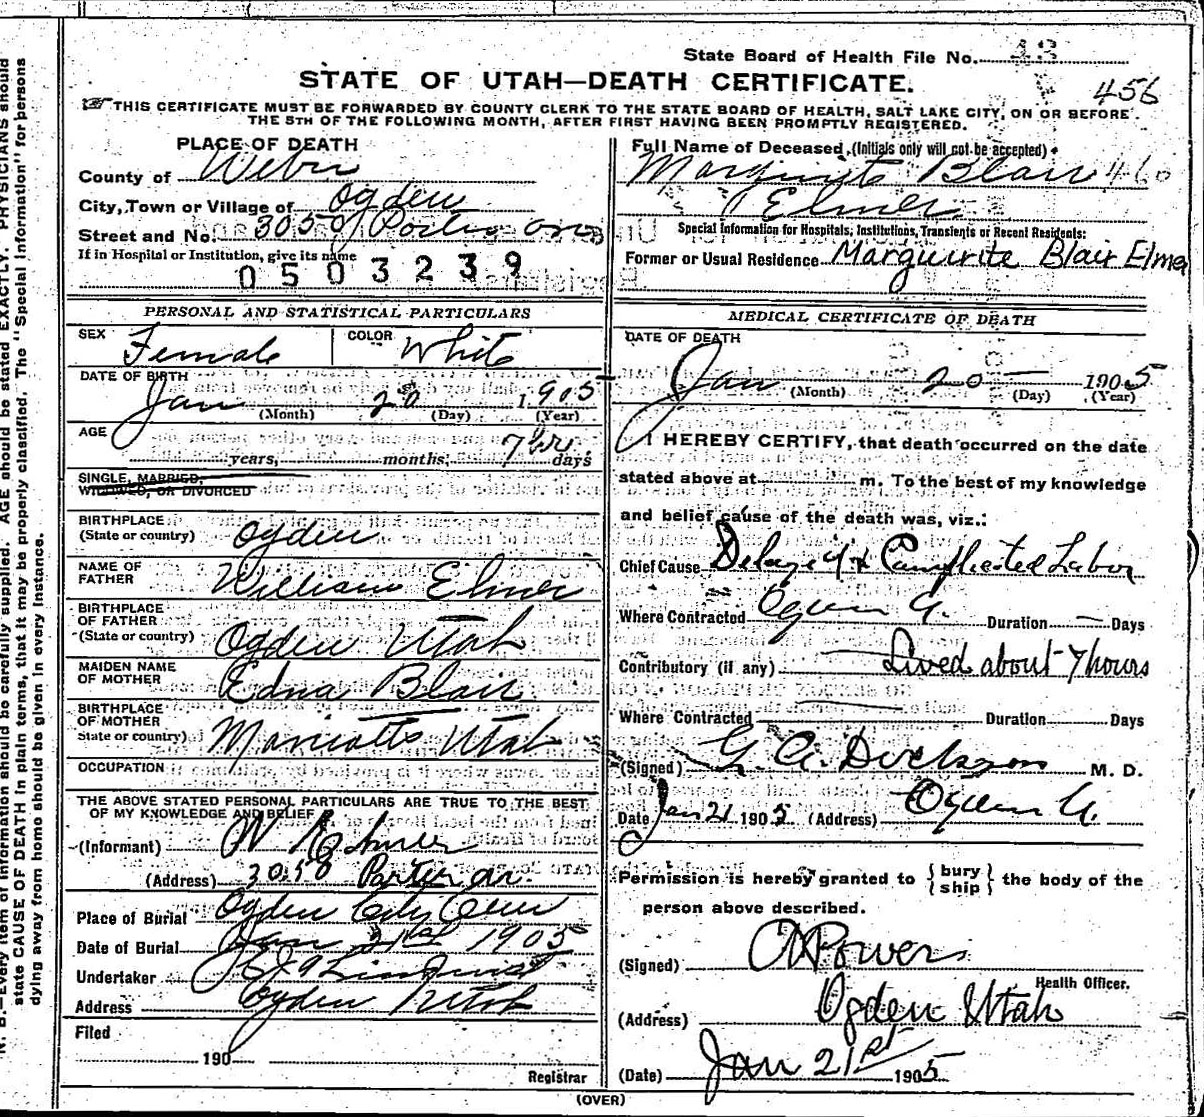 State Board of Health File No. 43
STATE OF UTAH—DEATH CERTIFICATE.
456
THIS CERTIFICATE MUST BE FORWARDED BY COUNTY CLERK TO THE STATE BOARD OF HEALTH, SALT LAKE CITY, ON OR BEFORE
THE 5TH OF THE FOLLOWING MONTH, AFTER FIRST HAVING BEEN PROMPTLY REGISTERED.
PLACE OF DEATH
County of Weber
City, Town or Village of Ogden
Street and No. 3050 Porter
If in Hospital or Institution, give its name
0503239
Full Name of Deceased (Initials only will not be accepted)
Marguirite Blair 460
Elmer
Special Information for Hospitals, Institutions, Transients or Recent Residents:
Former or Usual Residence Marguirite Blair Elmer
PERSONAL AND STATISTICAL PARTICULARS
SEX Female COLOR White
DATE OF BIRTH
Jan (Month) 20 (Day) 1905 (Year)
AGE
years, months, 7 hrs days
SINGLE, MARRIED,
WIDOWED, OR DIVORCED
BIRTHPLACE
(State or country) Ogden
NAME OF
FATHER William Elmer
BIRTHPLACE
OF FATHER
(State or country) Ogden Utah
MAIDEN NAME
OF MOTHER Edna Blair
BIRTHPLACE
OF MOTHER
State or country) Marriotts Utah
OCCUPATION
THE ABOVE STATED PERSONAL PARTICULARS ARE TRUE TO THE BEST
OF MY KNOWLEDGE AND BELIEF
(Informant) W Elmer
(Address) 3050 Porter av.
Place of Burial Ogden City Cem
Date of Burial Jan 21st 1905
Undertaker Lindquist
Address Ogden Utah
Filed
190
Registrar
MEDICAL CERTIFICATE OF DEATH
DATE OF DEATH
Jan (Month) 20 (Day) 1905 (Year)
I HEREBY CERTIFY, that death occurred on the date
stated above at m. To the best of my knowledge
and belief cause of the death was, viz.:
Chief Cause Delayed & Complicated Labor
Where Contracted Ogden U. Duration — Days
Contributory (if any) Lived about 7 hours
Where Contracted Duration Days
(Signed) G. A. Dickson M. D.
Date Jan 21 1905 (Address) Ogden U.
Permission is hereby granted to { bury ship } the body of the
person above described.
(Signed) Powers
Health Officer.
(Address) Ogden Utah
(Date) Jan 21st 1905
(OVER)
N. B.—Every item of information should be carefully supplied. AGE should be stated EXACTLY. PHYSICIANS should
state CAUSE OF DEATH in plain terms, that it may be properly classified. The "Special Information" for persons
dying away from home should be given in every instance.